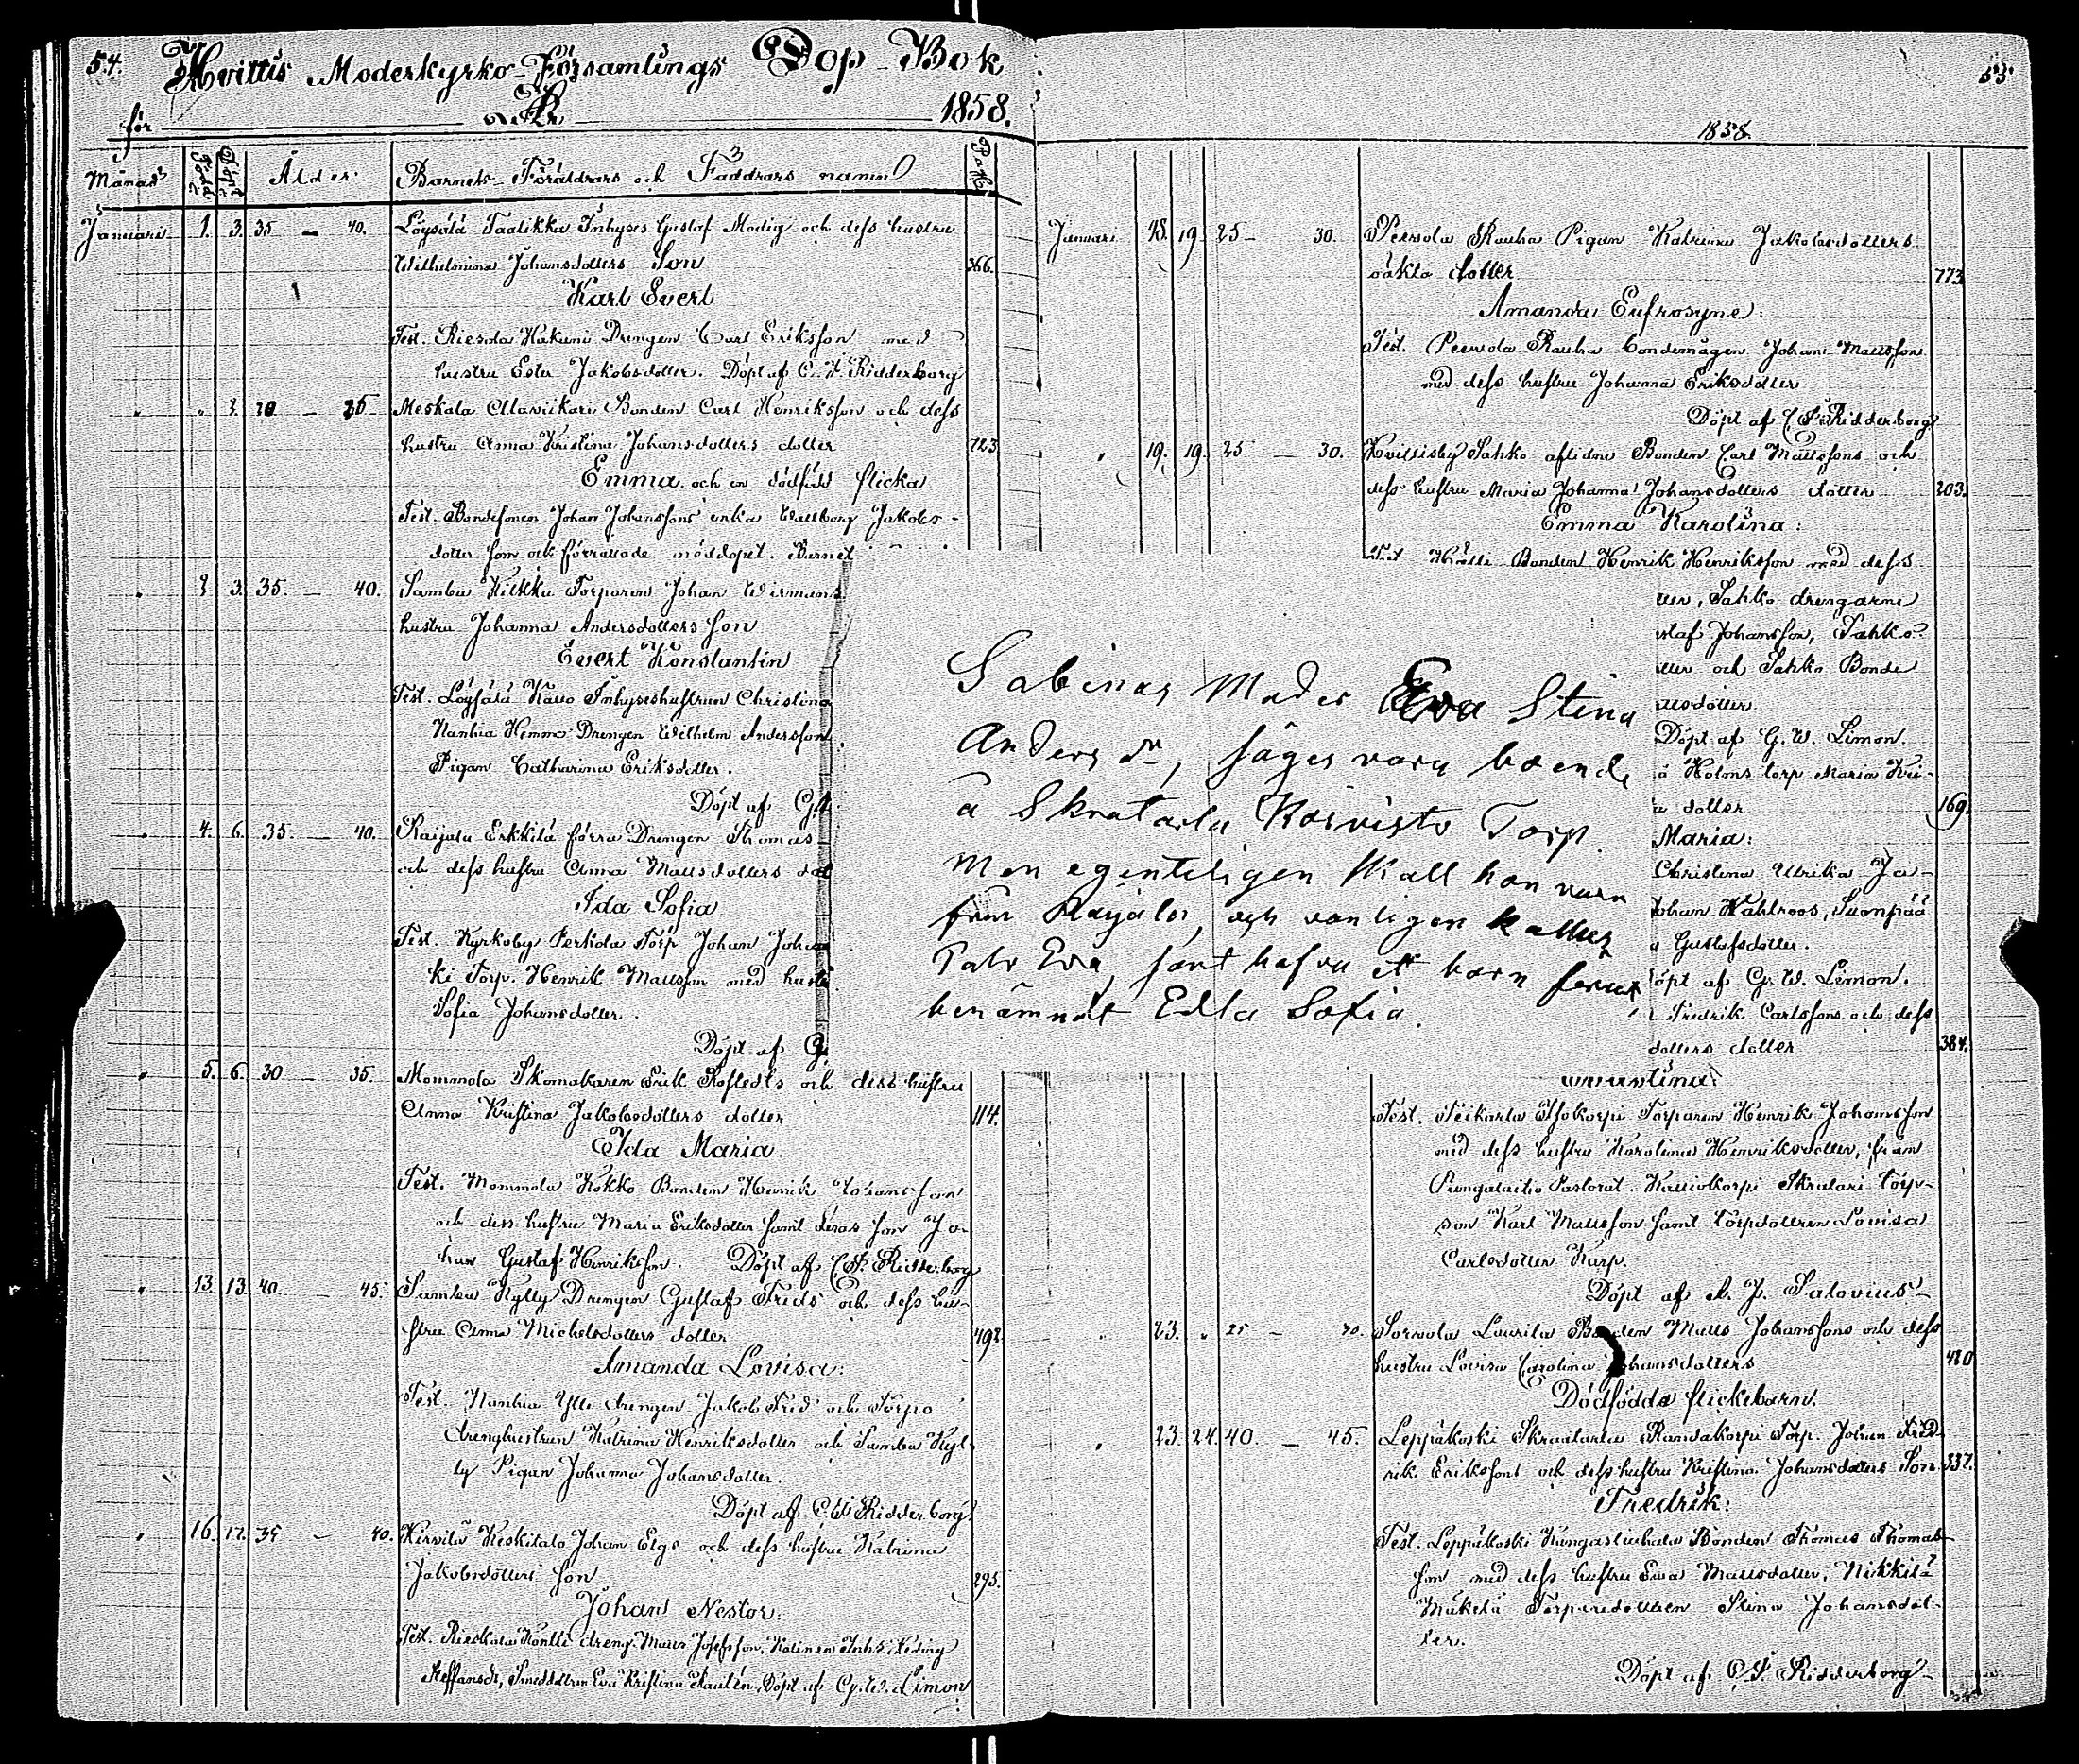 54.
Hvittis Moderkyrko-Församlings Dop-Bok
för År 1858.
Månad Född Döpt Ålder. Barnets Föräldrars och Faddrars namn Pag.
Januari 1. 3. 35 — 40. Löysälä Taatikka Inhyses Gustaf Modig och dess hustru
Wilhelmina Johansdotters Son 366.
Karl Evert
Test. Riesola Hakuni Drengen Carl Eriksson med
hustru Ester Jakobsdotter. Döpt af C. F. Ridderborg
" " 3. 20 — 25 Meskala Alaviikari Bonden Carl Henriksson och dess
hustru Anna Kristina Johansdotters dotter 723
Emma och en dödfödd flicka
Test. Bondesonen Johan Johanssons enka Wallborg Jakobs-
dotter som ock förrättade nöddopet. Barnet
" 3. 35. — 40. Sambu Kilkku Torparen Johan Wirmans
hustru Johanna Andersdotters son
Evert Konstantin
Test. Löysälä Kauo Inhyseshustrun Christina
Nanhia Hemmo Drengen Wilhelm Andersson
Pigan Catharina Eriksdotter.
Döpt af G.
" 4. 6. 35. — 40. Raijala Erkkilä förra Drengen Thomas
och dess hustru Anna Mattsdotters dot
Ida Sofia
Test. Kyrkoby Perkola Torp Johan Johan
ki Torp. Henrik Mattsson med hustr
Sofia Johansdotter.
Döpt af G.
" 5. 6. 30 — 35. Mommola Skomakaren Erik Rofledts och dess hustru
Anna Kristina Jakobsdotters dotter 114.
Ida Maria
Test. Mommola Kokko Bonden Henrik Johansson
och dess hustru Maria Eriksdotter samt deras son Jo-
han Gustaf Henriksson. Döpt af C. F. Ridderborg
" 13. 13. 40. — 45. Sambu Kylly Drengen Gustaf Frids och dess hu-
stru Anna Michelsdotters dotter 492.
Amanda Lovisa:
Test. Nanhia Ylli drengen Jakob Frid och Törpo
drenghustrun Katrina Henriksdotter och Sambu Kyl-
ly Pigan Johanna Johansdotter.
Döpt af C. F. Ridderborg.
" 16. 17. 35 — 40. Kirvilä Keskitalo Johan Elgs och dess hustru Katrina
Jakobsdotters son 293.
Johan Nestor.
Test. Rieskala Kontti dreng. Matts Josefsson,
Steffansdr, Smeddottren Eva Kristina Rautén, Döpt af G. W. Limon
Sabinas Moder Eva Stina
Anders dr, säges vara boende
å Skrataila Koivisto Torp.
Men egenteligen skall hon vara
från Raijala, och vanligen kallas
Palo Eva, samt hafva ett barn förut
benämndt Edla Sofia.
55
1858.
Januari 18. 19. 25 — 30. Peevola Rauha Pigan Katrina Jakobsdotters
oäkta dotter 773.
Amanda Eufrosyne:
Test. Peevola Rauha bondemågen Johan Mattsson
med dess hustru Johanna Eriksdotter
Döpt af C. F. Ridderborg
" 19. 19. 25 — 30. Kvitsisby Sahko aflidne Bonden Carl Mattssons och
dess hustru Maria Johanna Johansdotters dotter 203.
Emma Karolina:
Test. Bonden Henrik Henriksson med dess
ter, Sahko drengarne
staf Johansson, Sahko
tter och Sahko Bonde
ttsdotter.
Döpt af G. W. Limon.
Holons torp Maria Kri-
a dotter 169.
Maria:
Christina Ulrika Ja-
Johan Wahlroos, Suonpää
a Gustafsdotter.
öpt af G. W. Limon.
Fredrik Carlssons och dess
dotters dotter 384.
Test. Teikarla Torparen Henrik Johansson
med dess hustru Karolina Henriksdotter, från
Pungalaitio Pastorat. Kalliokorpi Skralari Torp-
son Karl Mattsson samt torpdottren Lovisa
Carlsdotter Karp.
Döpt af A. J. Salovius
" 23. " 25 — 30. Sorvola Laurila Bonden Matts Johanssons och dess
hustru Lovisa Carolina Johansdotters 480
Dödfödda flickebarn.
" 23. 24. 40. — 45. Leppäkoski Skraatarla Randakorpi Torp. Johan Fred-
rik Erikssons och dess hustru Kristina Johansdotters Son 337.
Fredrik:
Test. Leppäkoski Kangasliuhala Bonden Thomas Thomas-
son med dess hustru Eva Mattsdotter, Nikkilä
Mäkelä Torparedottren Stina Johansdot-
ter.
Döpt af C. F. Ridderborg